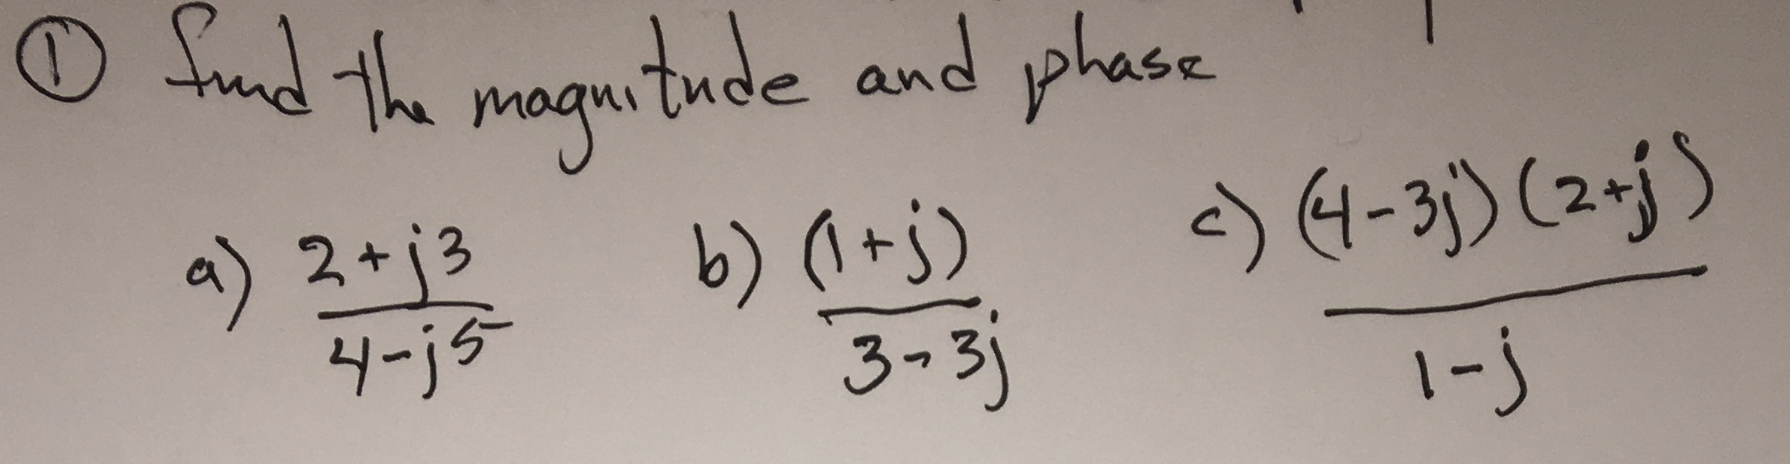 ① find the magnitude and phase
a) 2+j3 / 4-j5
b) (1+j) / 3-3j
c) (4-3j)(2+j) / 1-j